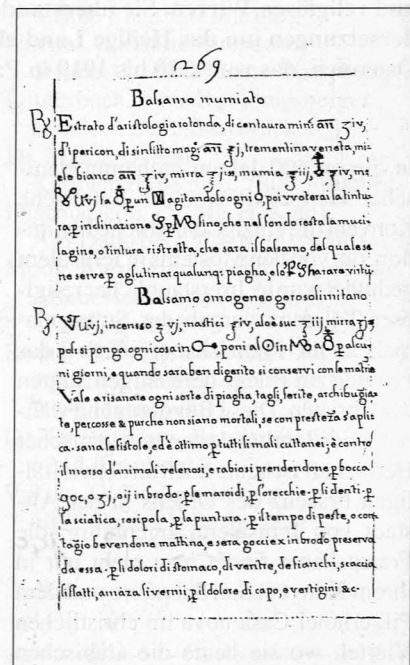 269
Balsamo mumiato
Estrato d'aristologia rotonda, di centaura min: añ ʒiv,
d'ipericon, di sinfitto mag: añ ʒj, trementina veneta, mi-
ele bianco añ ʒiv, mirra ʒjss, mumia ʒiij, ʒiv, mi-
agitandolo ogni poi voterai la tintu-
ra p inclinazione sino che nel fondo resta la muci-
lagine o tintura ristretta, che sarà il balsamo, del quale se
ne serva p aglutinar qualunq: piagha, e lo farà rara virtù
Balsamo omogneo gerosolimitano
incensso ʒ vj, mastic: ʒiv, aloè suc: ʒiij, mirra ʒjss,
pesfi si ponga ogni cossa in poni al in
ni giorni, e quando sara ben digerito si conservi con le matrie
Vale a risanare ogni sorte di piagha, tagli, ferite, archibugia-
te, percosse & purche non siano mortali, se con prestezza s'apli-
ca. sana le fistole, ed è ottimo p tutti li mali cuttanei, è contro
il veleno d'animali velenosi, e rabiosi prendendone p bocca
goc, o ʒj, o ij in brodo. p le maroidi, p l'orecchie. p li denti. p
la sciatica, resipola, p la puntura. p il tempo di peste, o con-
togio bevendone mattina, e sera gocie x in brodo preserva
da essa. p li dolori di stomaco, di ventre, de fianchi, scaccia
li flatti, amàza li vermi, p il dolore di capo, e vertigini & c.